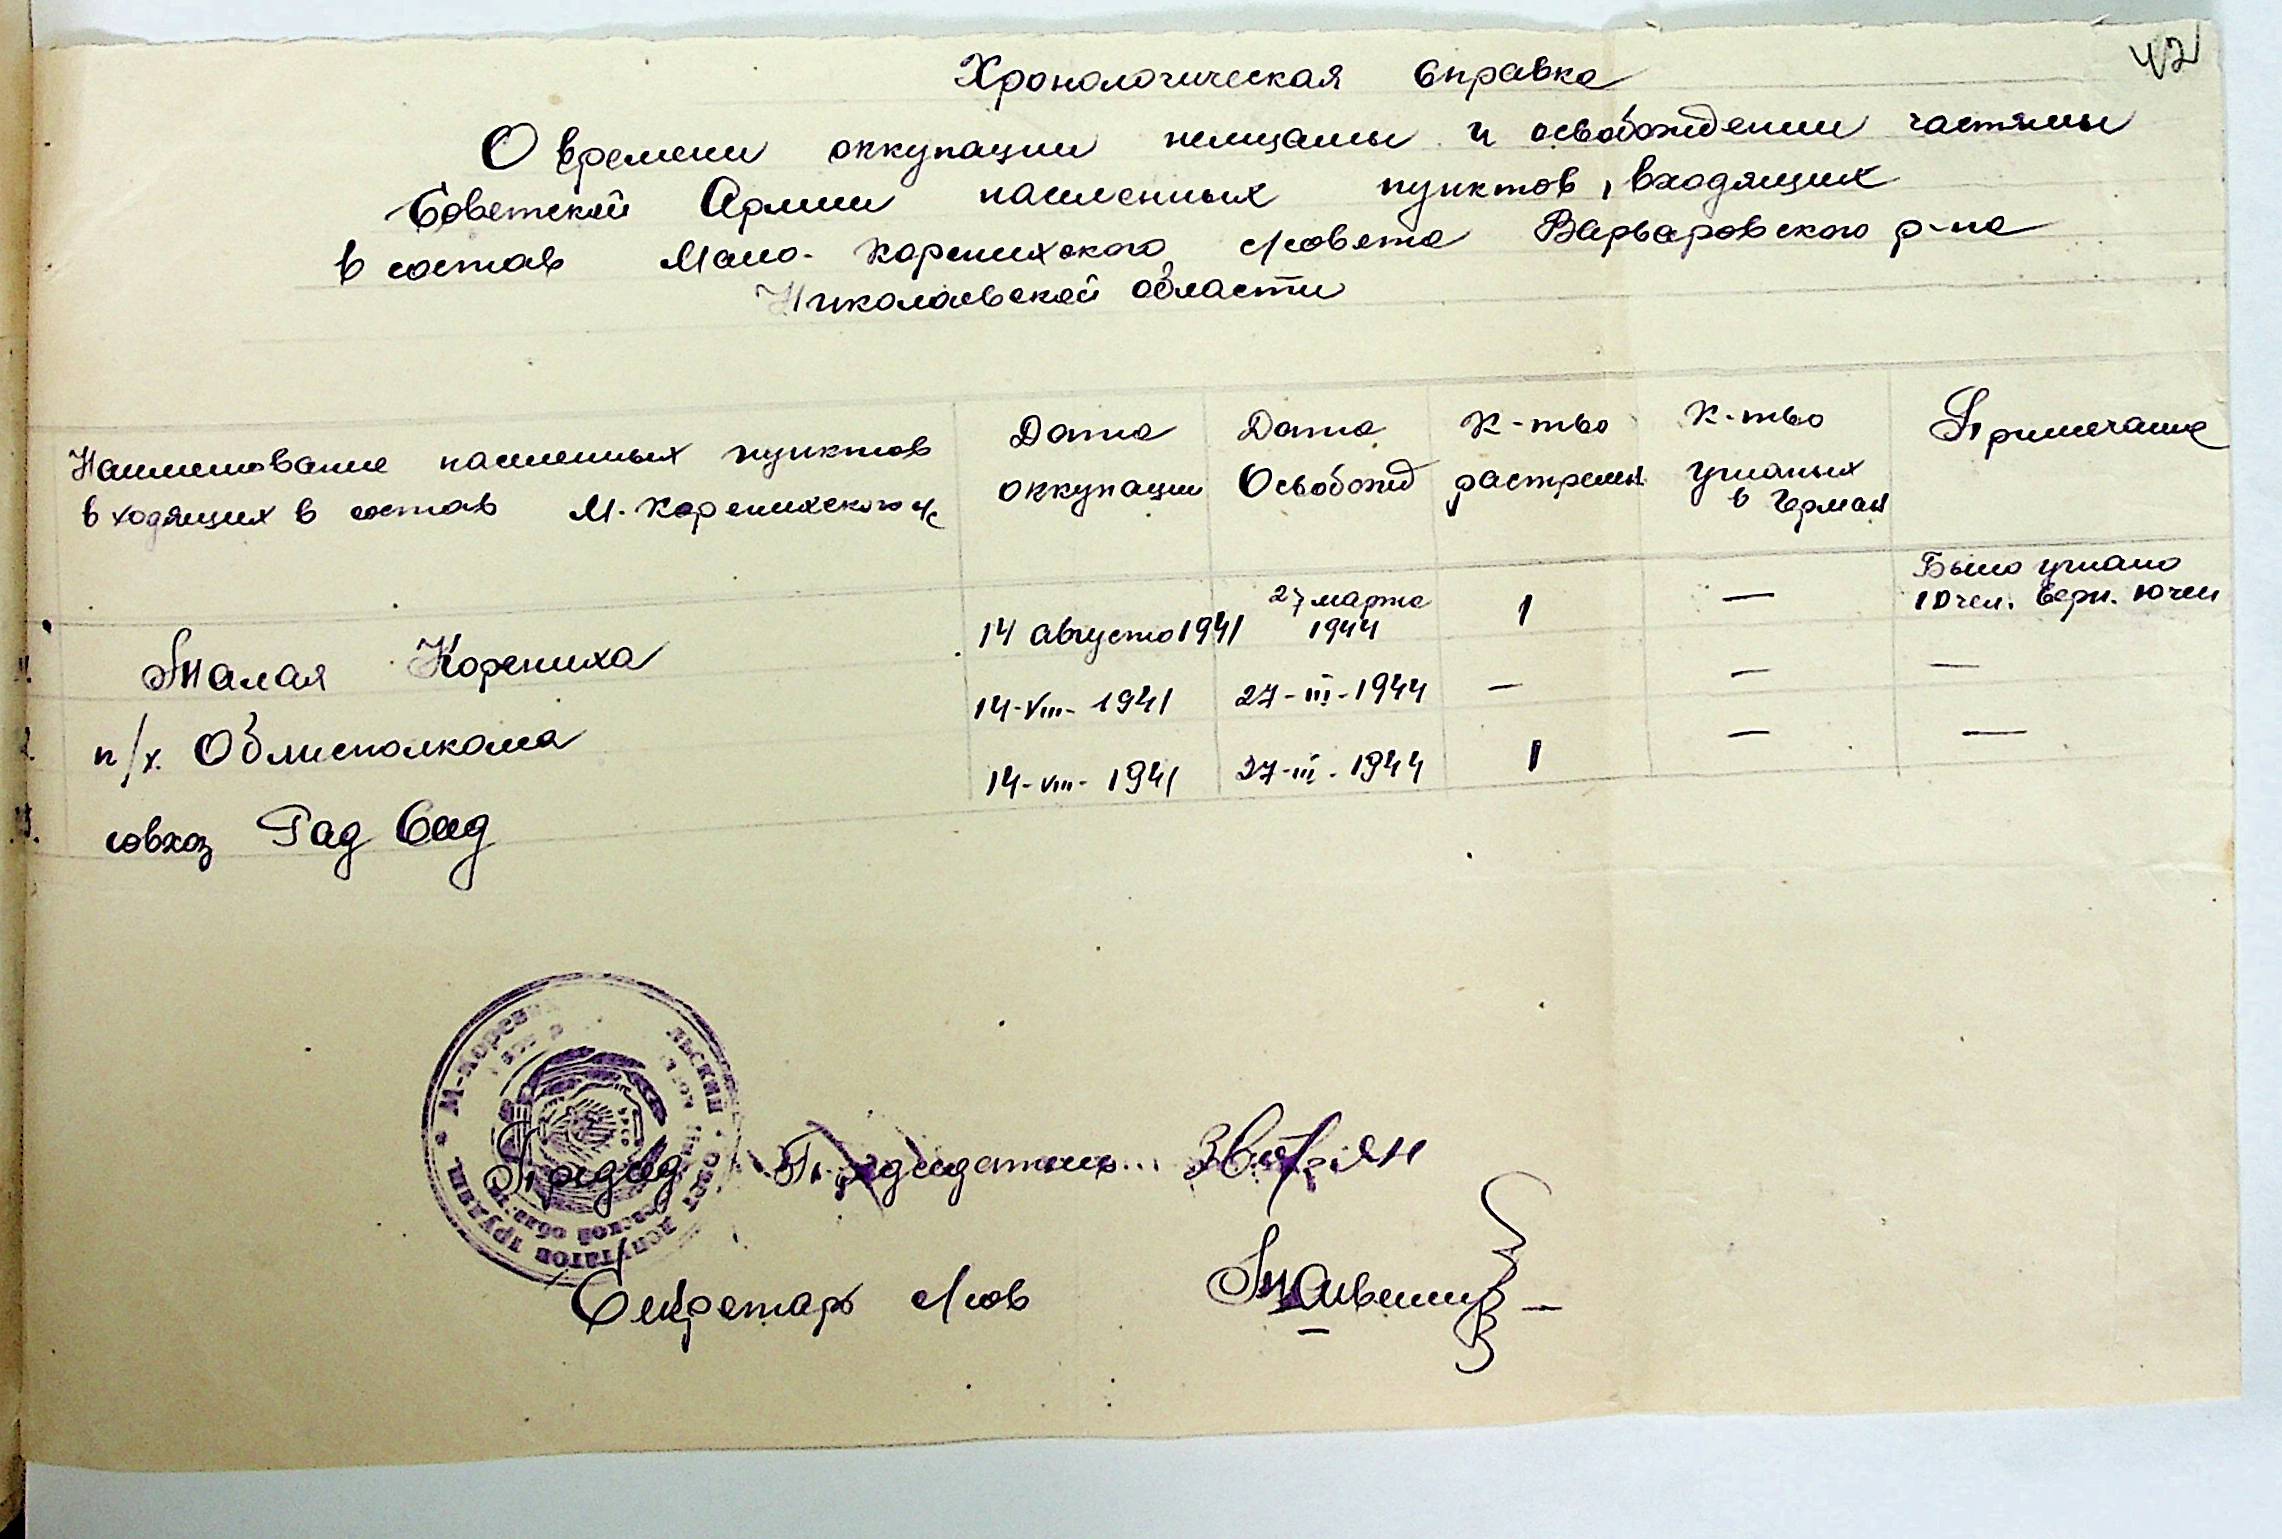 42
Хронологическая справка
О времени оккупации немцами и освобождении частями
Советской Армии населенных пунктов, входящих
в состав Мало-Коренихского с/совета Варваровского р-на
Николаевской области
Наименование населенных пунктов
входящих в состав М.Коренихского с/с
Дата
оккупации
Дата
Освобожд
К-тво
растрелян
К-тво
угнаных
в Герман
Примечание
1. Малая Корениха 14 августа 1941 27 марта 1944 1 —
Было угнано
10 чел. Верн. 10 чел
2. п/х. Облисполкома 14-VIII-1941 27-III-1944 — — —
3. совхоз Рад Сад 14-VIII-1941 27-III-1944 1 — —
М-Корених льский Совет депутатов трудящ.
УРСР
Председ
Секретарь с/сов